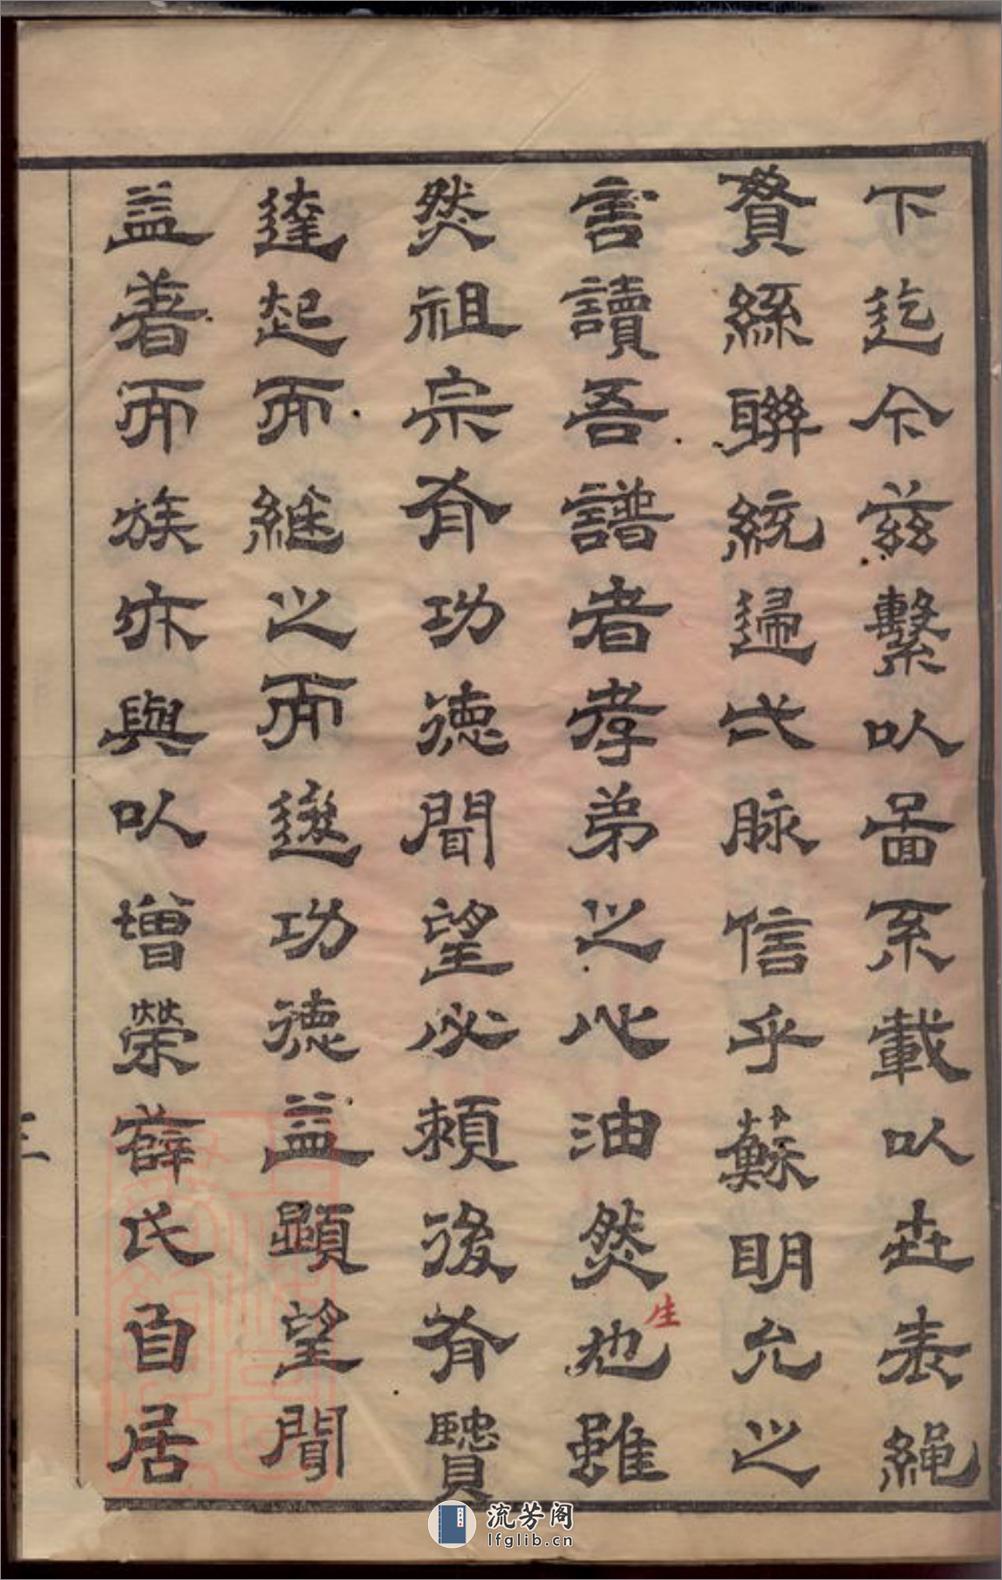 下迄今茲繫以圖系載以世表繩
貫絲聯統歸一脉信乎蘇明允之
言讀吾譜者孝弟之心油然也雖
生
然祖宗有功德聞望必賴後有賢
達起而繼之而後功德益顯望聞
益著而族亦與以增榮薛氏自居
三
流芳阁
lfglib.cn